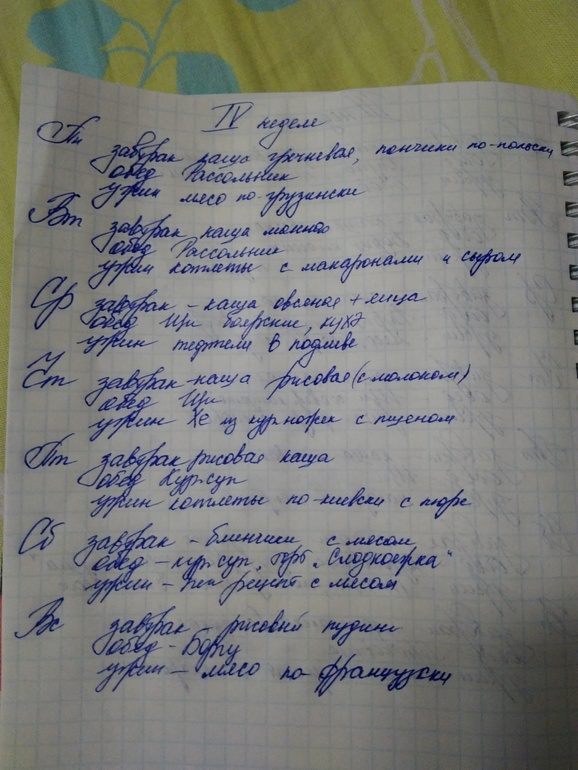 IV неделя
Пн
завтрак каша гречневая, пончики по-польски
обед Рассольник
ужин мясо по-грузински
Вт
завтрак каша манная
обед Рассольник
ужин котлеты с макаронами и сыром
Ср
завтрак - каша овсяная + яйца
обед Щи боярские,
ужин тефтели в подливе
Чт
завтрак - каша рисовая (с молоком)
обед Щи
ужин Хе из кур. ножек с пшеном
Пт
завтрак рисовая каша
обед Кур. суп
ужин котлеты по-киевски с пюре
Сб
завтрак - блинчики с мясом
обед - кур. суп, торт "Сладкоежка"
ужин - рецепт с мясом
Вс
завтрак - рисовый пудинг
обед - Борщ
ужин - мясо по-французски